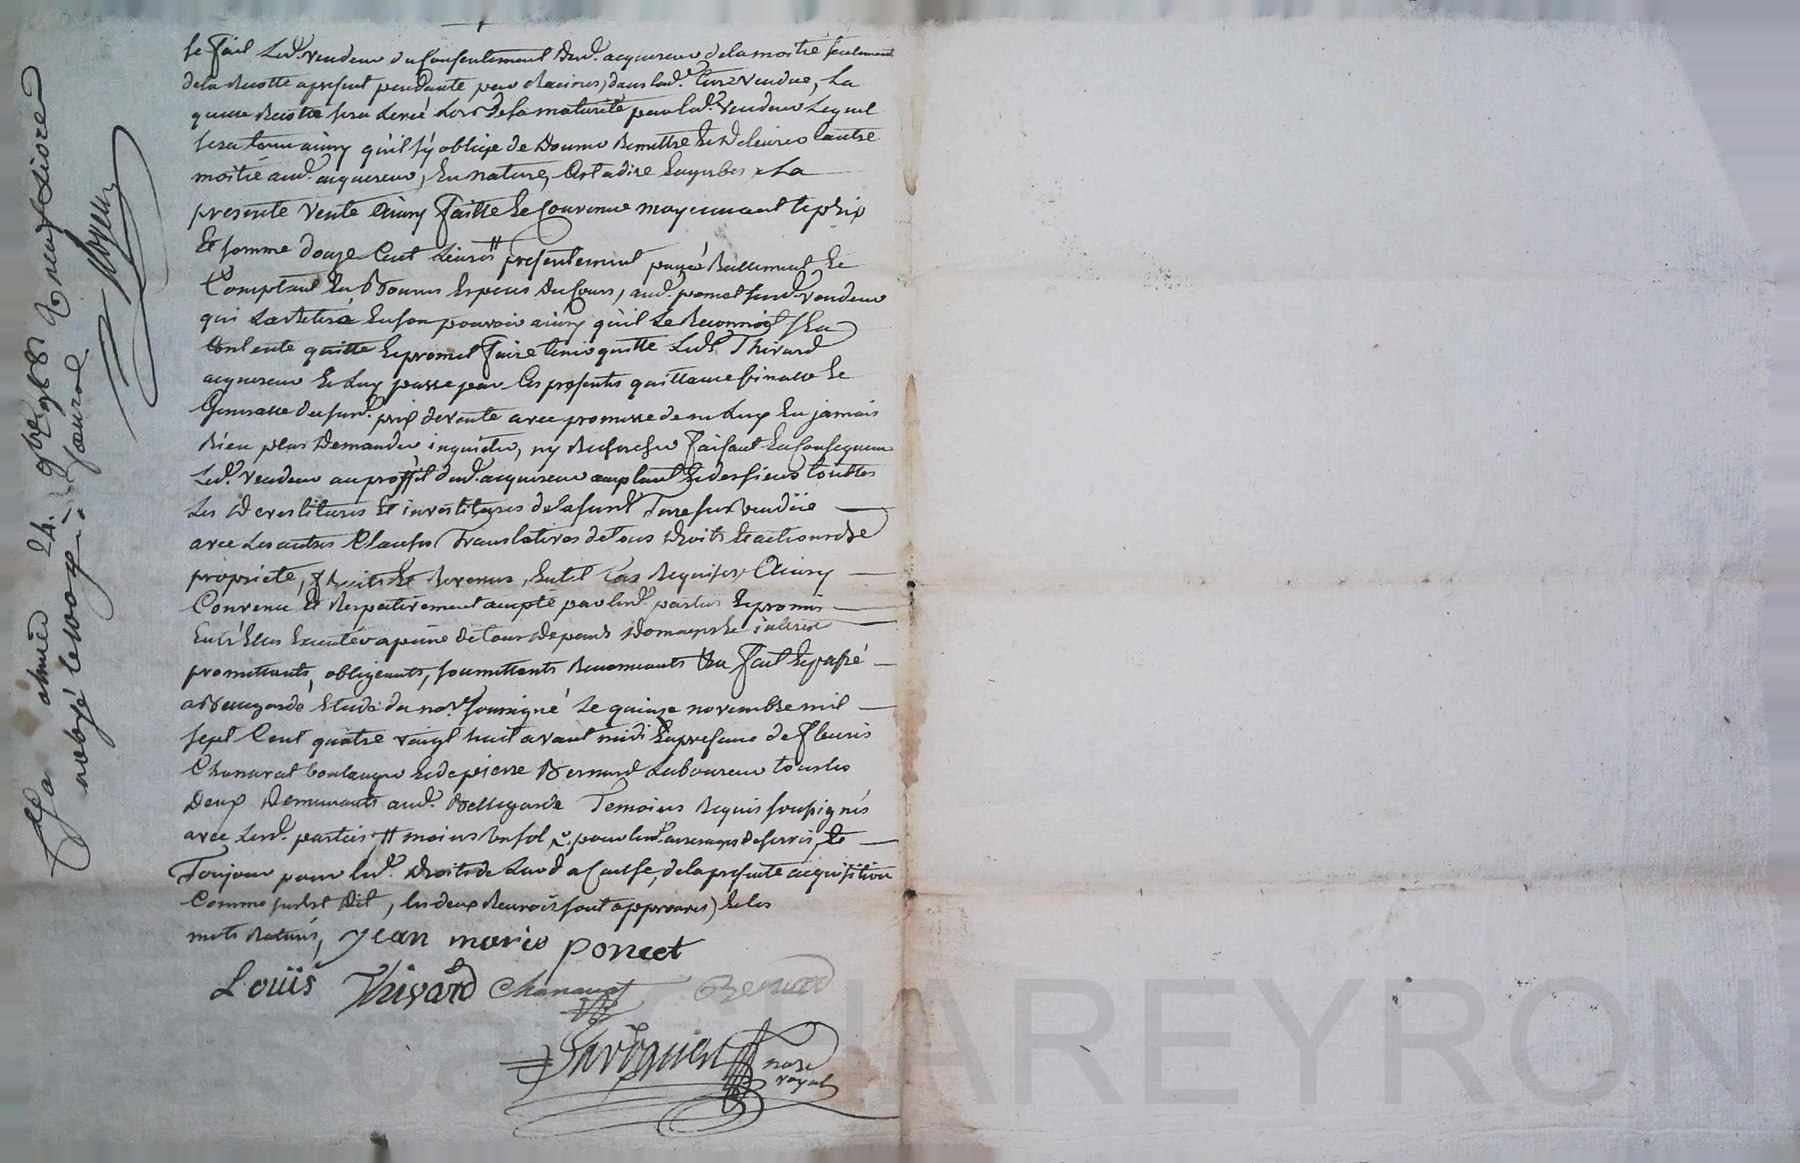 le fait led. vendeur du consentement dud. acquereur de la moitié seulement
de la recolte apresent pendante par racines, dans lad. terre vendue, La
quelle recolte sera levé Lors de la maturité par led. vendeur Lequel
sera tenu ainsy qu'il s'y oblige de donner remettre et délivrer lautre
moitié aud. acquereur, En nature, C'est a dire En gerbes, La
presente vente ainsy faitte et convenue moyennant le prix
Et somme d'onze Cent Livres presentement payé reellement et
Comptant En bonnes Especes du Cours, aud. poncet susd. vendeur
qui La retiré En son pouvoir ainsy qu'il le reconnoit s'en
Contente quitte et promet faire tenir quitte Led. Thivard
acquereur et Luy passe par les presentes quittance finalle et
Generalle du susd. prix de vente avec promesse de ne luy En jamais
Rien plus demander, inquiéter, ny rechercher faisant En Consequence
Led. vendeur au proffit dud. acquereur acceptant et des siens touttes
Les devestitures Et investitures de la susd. Terre sus vendüe
avec Les autres Clauses Translatives de tous droits et actions de
propriete, fruits Et revenus, En tel Cas requises Ainsy
Convenu Et Respectivement accepté par lesd. parties et promis
Entr'Elles Executer a peine de tous depends dommages et interest
promettants, obligeants, soumettants renonceants &a fait et passé
a Bellegarde Etude du nore. soussigné Le quinze novembre mil
sept Cent quatre vingt huit avant midi En presence de fleuris
Chanavat boulanger et de pierre Bernard Laboureur tous les
deux demeurants aud. Bellegarde Temoins requis soussignés
avec Lesd. parties, # moins un sol, pour lesd. de servis, et
Toujour pour lesd. droits de Laud a Cause, de la presente acquisition
Comme susd est dit, les deux renvois sont approuvés, et les
mots raturés, jean marie poncet
Loüis Thivard Chanavat Bernard
nore
royal
24. 9bre 1788